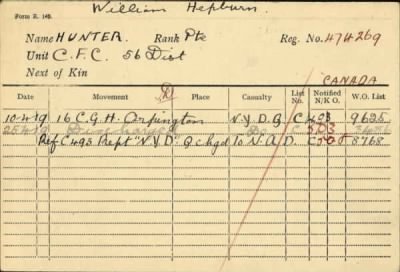 William Hepburn.
Form R. 149.
Name HUNTER. Rank Pte Reg. No. 474269
Unit C.F.C. 56 Dist
Next of Kin
CANADA
Date Movement Place Casualty List No. Notified N/K O. W.O. List
10-4-19 16 C.G.H. Orpington N.Y.D.G C 403 9625
25-4-19 Discharged Do C 503
Ref C 493 Rept "N.Y.D." Q chgd to N.A.D. C 505 8768